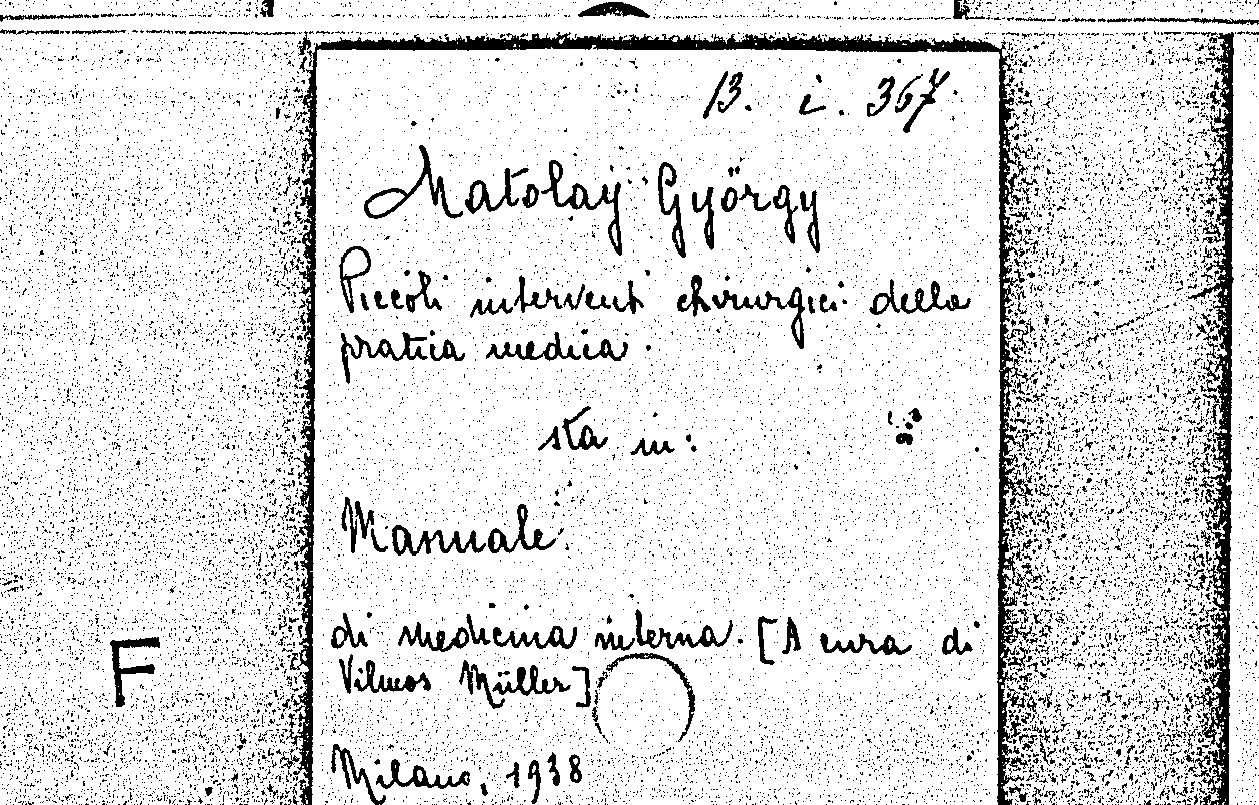 13. i. 367.
Matolay György
Piccoli interventi chirurgici della
pratica medica.
sta in:
Manuale
di medicina interna. [A cura di
Vilmos Müller]
F
Milano, 1938